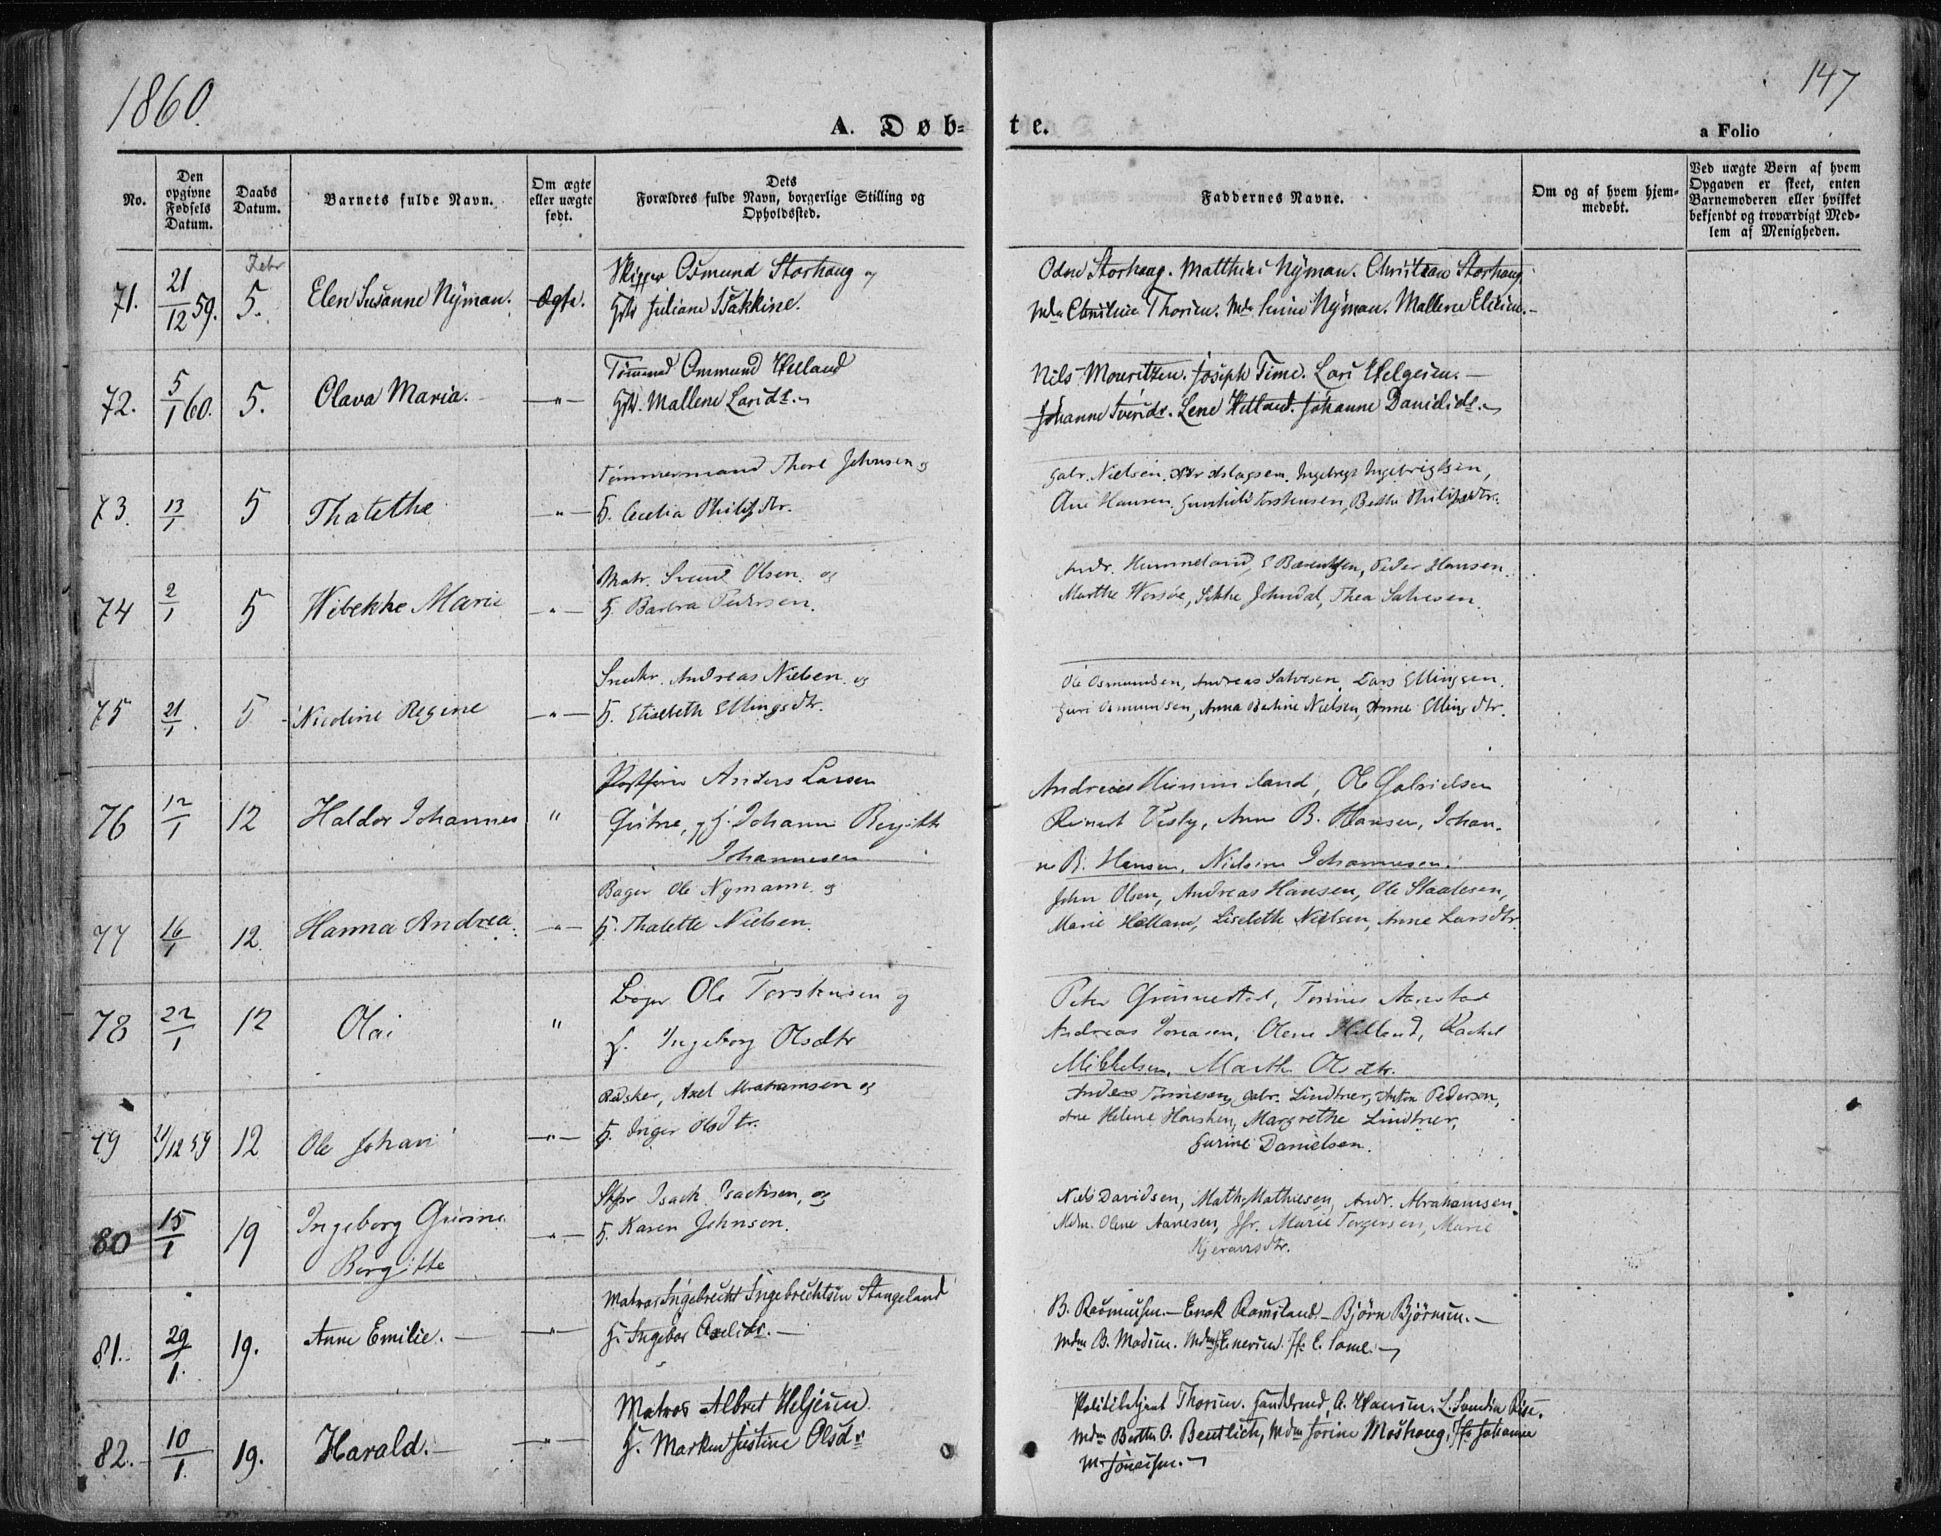 1860.
147
A. Døb=
te.
a Folio
No.
Den opgivne Fødsels Datum.
Daabs Datum.
Barnets fulde Navn.
Om ægte eller uægte født.
Dets Forældres fulde Navn, borgerlige Stilling og Opholdssted.
Faddernes Navne.
Om og af hvem hjem-
medøbt.
Ved uægte Børn af hvem
Opgaven er skeet, enten
Barnemoderen eller hvilket
bekjendt og troværdigt Med-
lem af Menigheden.
71. 21/12 59. Febr 5. Elen Susanne Nyman. Ægte.
Skipper Osmund Storhaug og
Juliane
Odne Storhaug. Matthias Nyman. Christian Storhaug
Mdm Christine Thorsen. Mdm Nyman. Mallene
72. 5/1 60. 5. Olava Maria. —"—
Tømmd Ommund Helland
Mallene Larsdr.
Nils Mouritzen. Joseph Time. Lars Helgesen.—
Johanne Lene Helland. Johanne
73. 13/1 5 Thalethe —"—
Tømmermand Thore Johnsen og
H. Cecilia Philipsdtr.
Gabr. Nielsen. Ingebrigt Ingebrigtsen,
Ane Hansen. Gunhild Torstensen, Berthe Philipsdtr.
74 2/1 5 Wibekke Marie —"—
Matr. Svend Olsen. og
H. Barbra Pedersen.
Andr. Hummeland, E Barentsen, Peder Hansen.
Marthe Sikke Johndal, Thea Salvesen.
75 21/1. 5 Nicoline Regine —"—
Snedkr. Andreas Nielsen. og
H. Elisebeth Ellingsdtr.
Ole Osmundsen, Andreas Salvesen, Lars Ellingsen.
Guri Osmundsen, Anna Bertine Nielsen, Anne Ellingsdtr.
76 12/1 12 Haldor Johannes "
Anders Larsen
og H. Johanne Bergitte
Johannesen
Andreas Hummeland, Ole Gabrielsen
Reinert Visby, Anne B. Hansen, Johan-
ne B. Hansen, Nielsine Johannesen.
77 16/1 12. Hanna Andrea. —"—
Bager Ole Nymann. og
H. Thalette Nielsen.
John Olsen, Andreas Hansen, Ole Staalesen,
Marie Helland, Liselethe Nielsen, Anne Larsdtr.
78 22/1 12 Olai "
Ole Torstensen og
H. Ingeborg Olsdtr
Peter Grønnestad, Tønnes Aanestad
Andreas Jonasen, Olene Helland, Rachel
Mikkelsen, Marthe Olsdtr.
79 21/12 59 12 Ole Johan —"—
Rødsker, Axel Abrahamsen og
H. Inger Olsdtr.
Anders Tønnesen, Gabr. Lindtner, Anton Pedersen,
Ane Helene Hausken, Margrethe Lindtner,
Gurine Danielsen.
80 15/1 19 Ingeborg Gurine
Bergitte —"—
Skpr Isach Isachsen, og
H. Karen Johnsen.
Niels Davidsen, Math. Mathiesen, Andr. Abrahamsen.
Mdm. Olene Aanesen, Jfr. Marie Torgersen, Marie
81. 29/1. 19. Anne Emilie.— —"—
Matros Ingebrecht Ingebrechtsen Stangeland
H. Ingebor Axelsdr.—
B. Rasmussen.— Enok Ramsland.— Bjørn Bjørnsen.—
Mdm B. Madsen. Mdm
82. 10/1. 19. Harald.— —"—
Matros Albret Helgesen.
H. Maren Justine Olsdr
Politibetjent Thorsen.
Mdm Berthe O. Bentlich, Mdm Jorine Moshaug, Jfr Johanne
M. Jonassen.